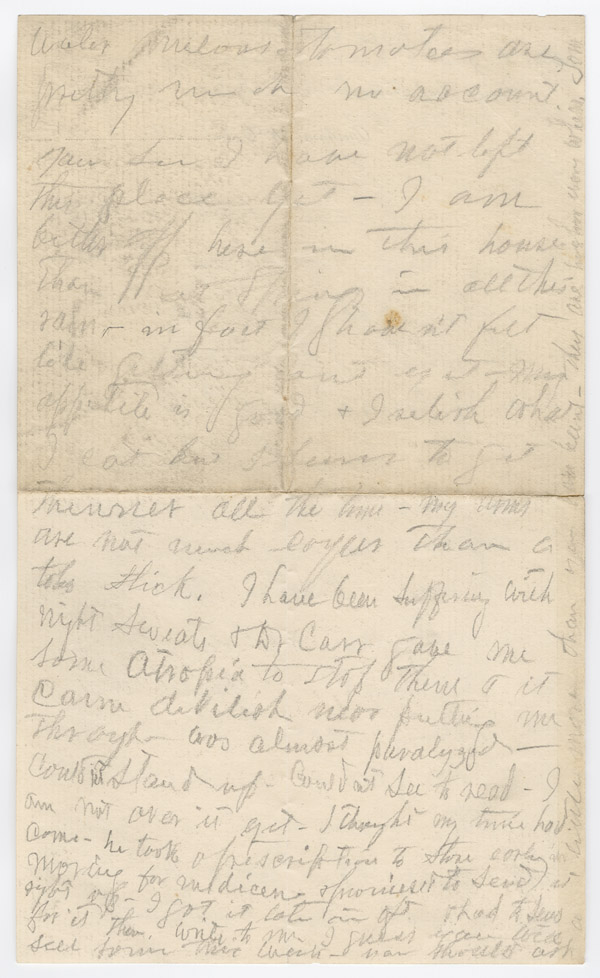 Water melons - tomatoes are
pretty much no account.
You see I have not left
this place yet - I am
better off here in this house
than in all this
rain & in fact I haven't felt
like getting out yet - My
appetite is good & I relish what
I eat but I seem to get
thinner all the time - my arms
are not much larger than a
tobo stick. I have been suffering with
night sweats & Dr Carr gave me
some Atropia to stop them & it
came devilish near putting me
through - was almost paralyzed -
couldn't stand up - couldn't see to read - I
am not over it yet - I thought my time had
come - he took prescription to store early in
morning for medicine & promised to send it
right up - I got it late in aft & had to send
for it then. Write to me I guess you will
sell some this week - you should ask
a little more than